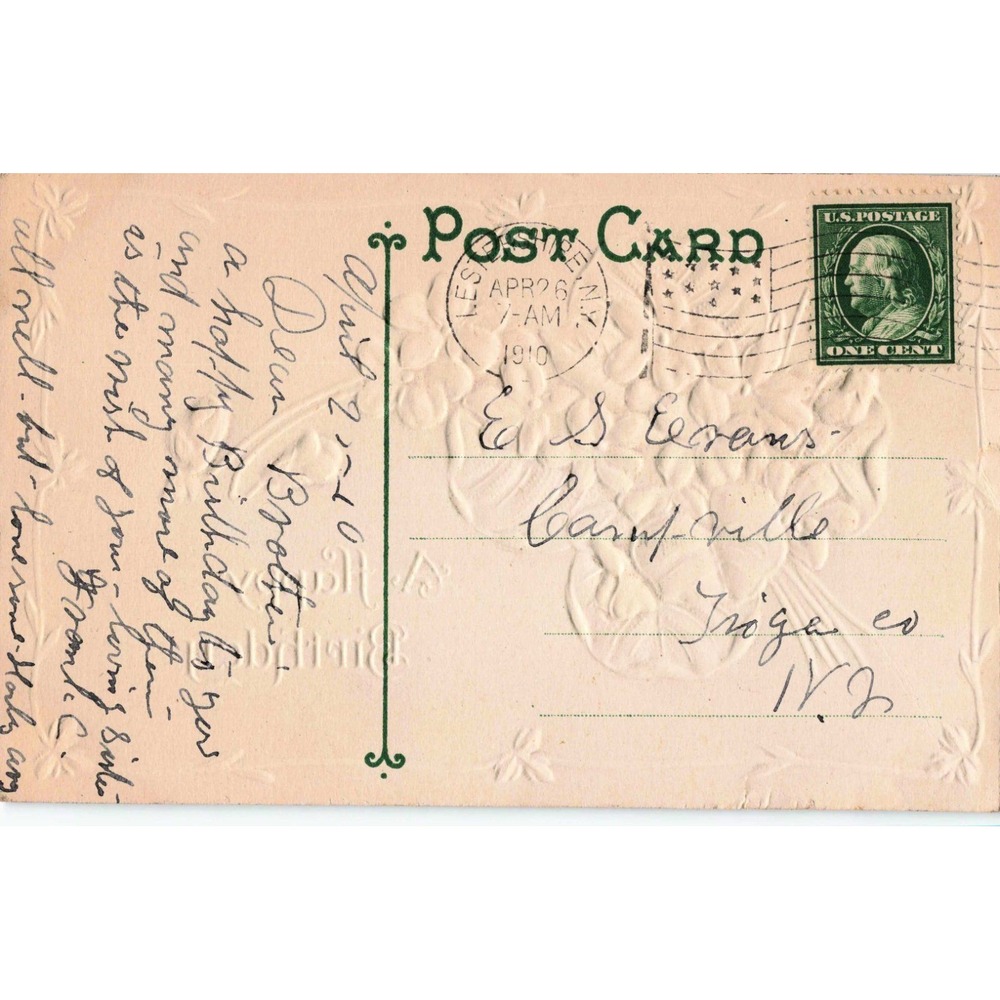 POST CARD
U.S. POSTAGE
ONE CENT
LESTERSHIRE, N.Y.
APR 26
7-AM
1910
April 2, -10
Dear Brother-
a happy Birthday to you
and many more of them-
is the wish of your- loving sister
all well- but- lonesome
E S Evans-
Camp-ville
Tioga co
N. Y
A Happy
Birthday